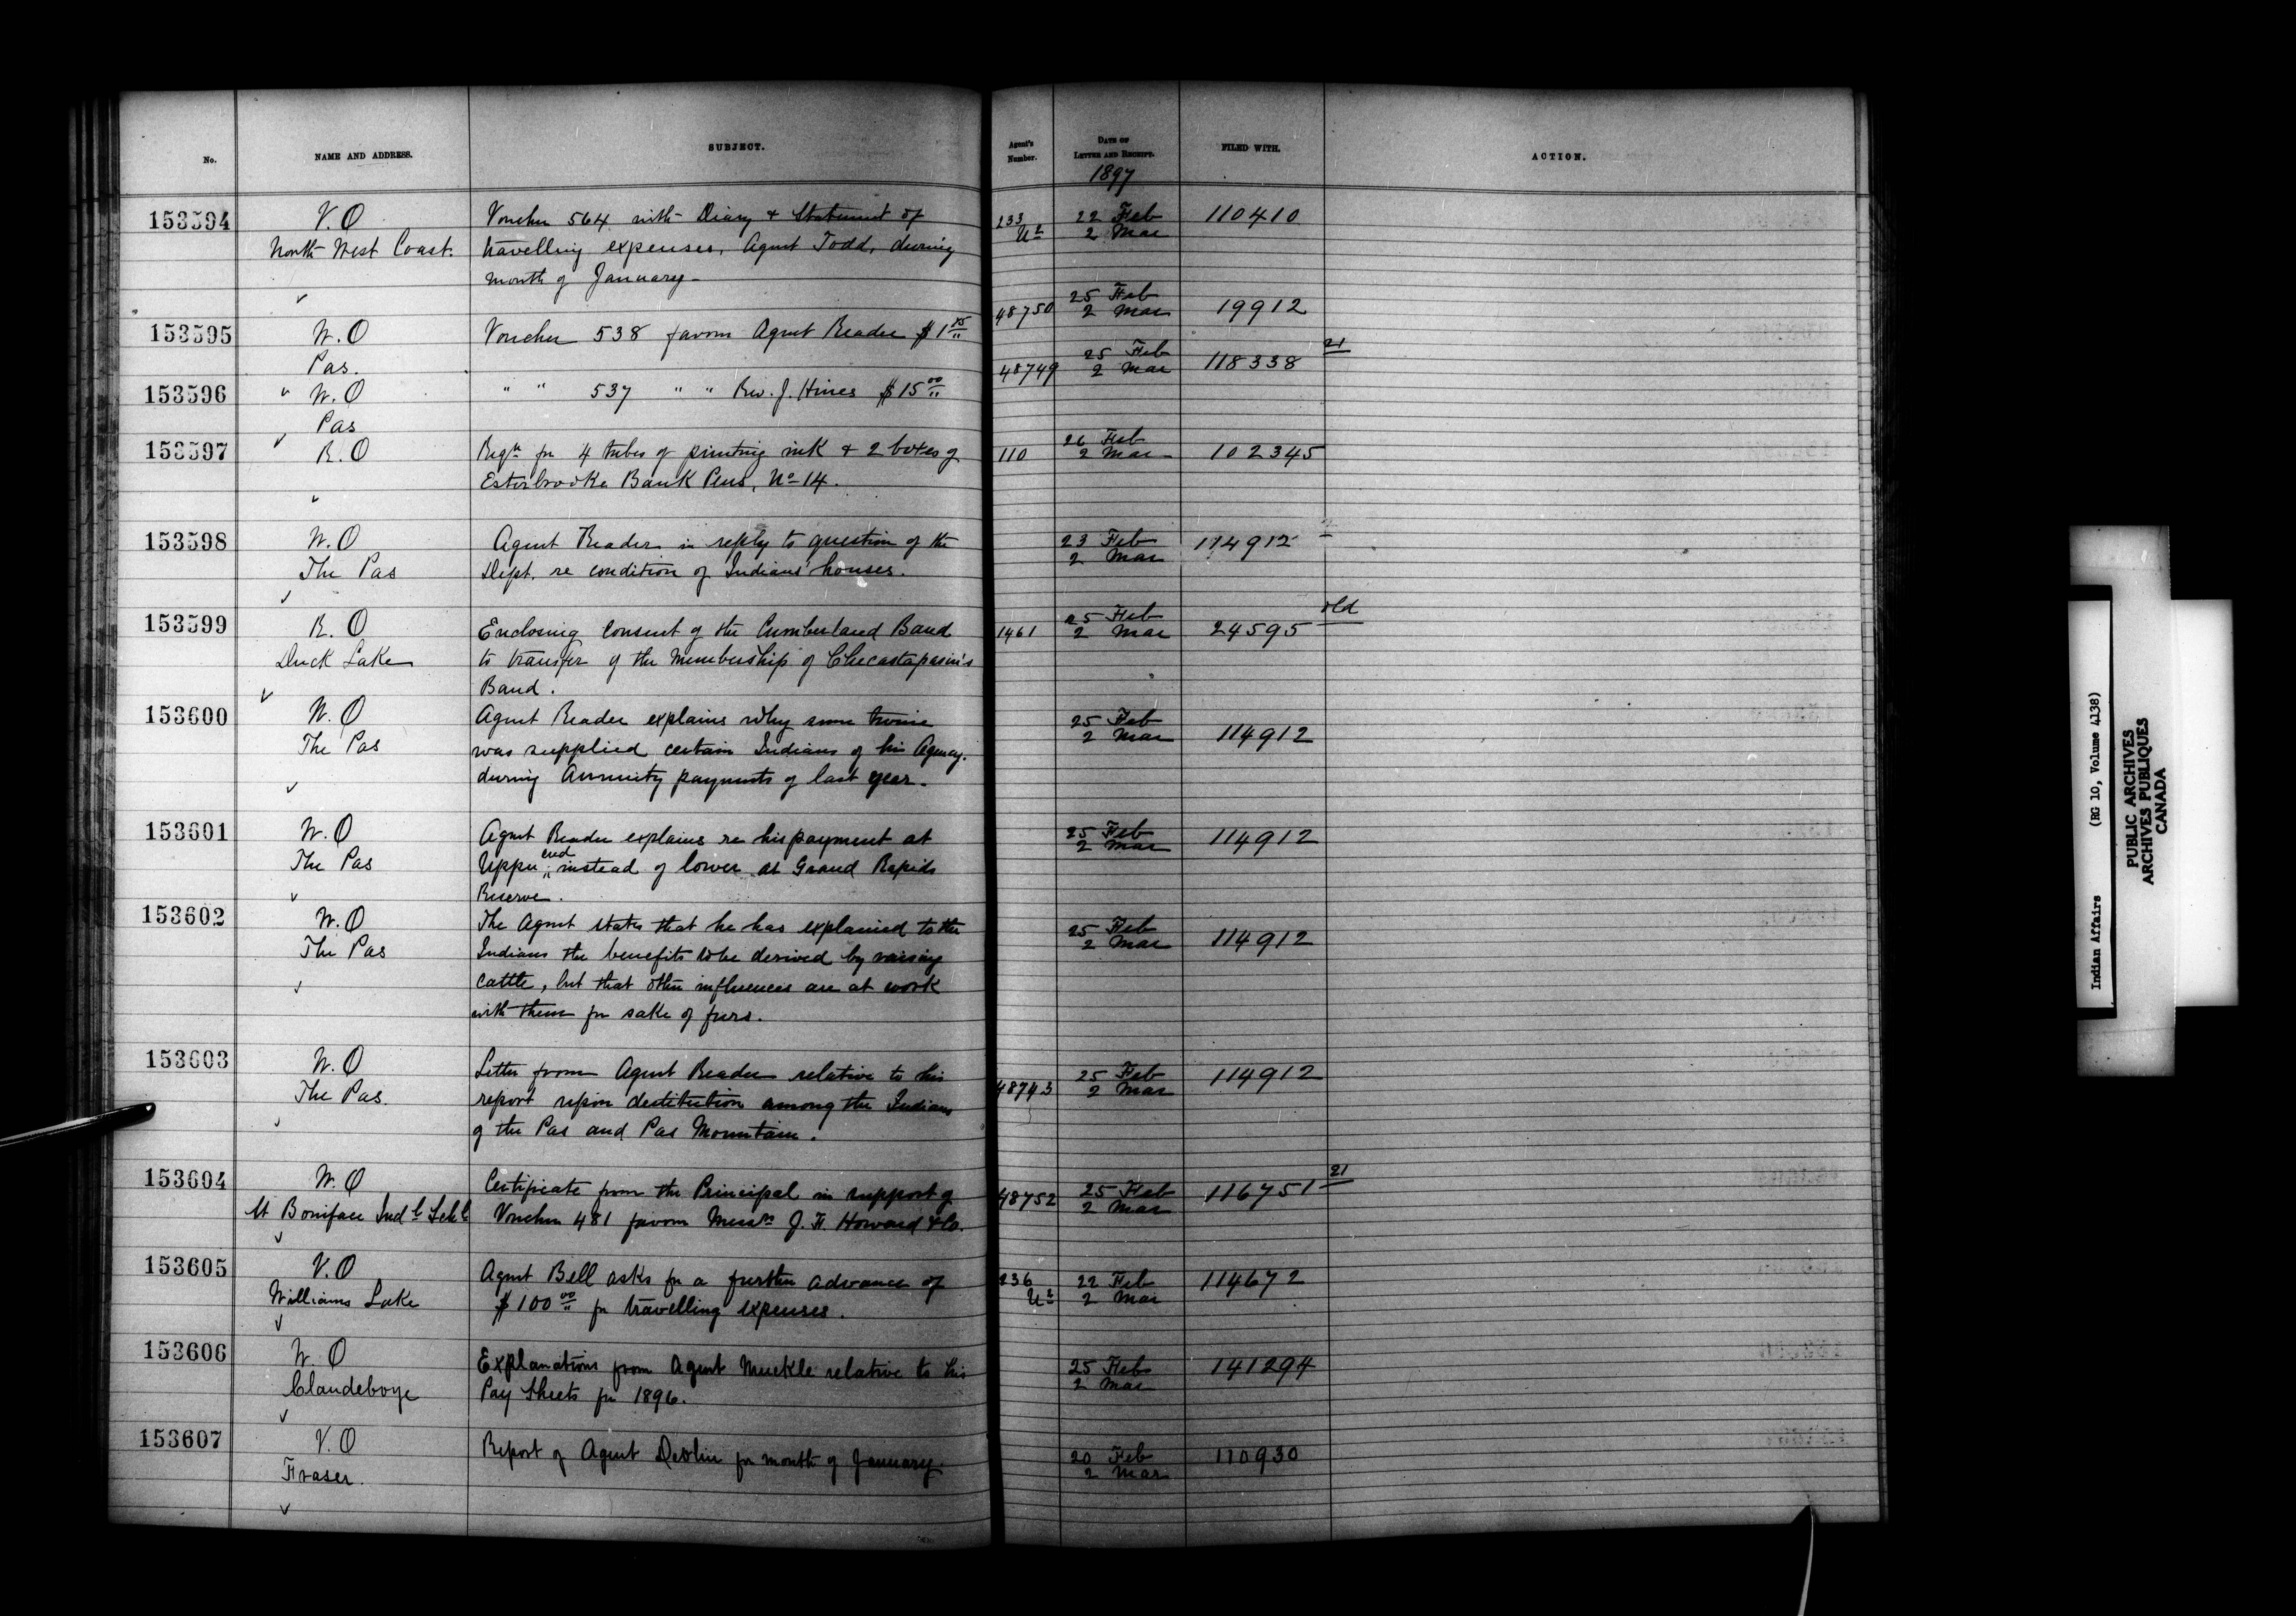 No.
NAME AND ADDRESS.
SUBJECT.
Agent's Number.
DATE OF LETTER AND RECEIPT.
FILED WITH.
ACTION.
1897
153594
V.O
North West Coast.
Voucher 564 with Diary & Statement of
travelling expenses, Agent Todd, during
month of January
233
22 Feb
2 Mar
110410
153595
W.O
Pas.
Voucher 538 favour Agent Reader $1
48750
25 Feb
2 Mar
19912
153596
" W.O
Pas
" " 537 " " Rev. J. Hines $15 00
48749
25 Feb
2 Mar
118338
21
153597
R.O
Reqn for 4 tubes of printing ink & 2 boxes of
Esterbrooke Bank Pens, No 14.
110
26 Feb
2 Mar
102345
153598
W.O
The Pas
Agent Reader in reply to question of the
Dept. re condition of Indians' houses.
23 Feb
2 Mar
114912
153599
R.O
Duck Lake
Enclosing consent of the Cumberland Band
to transfer of the membership of Checastapasin's
Band.
1461
25 Feb
2 Mar
24595
old
153600
W.O
The Pas
Agent Reader explains why some twine
was supplied certain Indians of his Agency.
during Annuity payments of last year.
25 Feb
2 Mar
114912
153601
W.O
The Pas
Agent Reader explains re his payment at
Upper end instead of lower at Grand Rapids
Reserve.
25 Feb
2 Mar
114912
153602
W.O
The Pas
The Agent states that he has explained to the
Indians the benefits to be derived by raising
cattle, but that other influences are at work
with them for sake of furs.
25 Feb
2 Mar
114912
153603
W.O
The Pas.
Letter from Agent Reader relative to his
report upon destitution among the Indians
of the Pas and Pas Mountain.
48743
25 Feb
2 Mar
114912
153604
W.O
St Boniface Indl Schl
Certificate from the Principal in support of
Voucher 481 favour Messrs J. H. Howard & Co.
48752
25 Feb
2 Mar
116751
21
153605
V.O
Williams Lake
Agent Bell asks for a further advance of
$100 00 for travelling expenses.
236
22 Feb
2 Mar
114672
153606
W.O
Clandeboye
Explanations from Agent Muckle relative to his
Pay Sheets for 1896.
25 Feb
2 Mar
141294
153607
V.O
Fraser.
Report of Agent Devlin for month of January.
20 Feb
2 Mar
110930
Indian Affairs (RG 10, Volume 4138)
PUBLIC ARCHIVES
ARCHIVES PUBLIQUES
CANADA